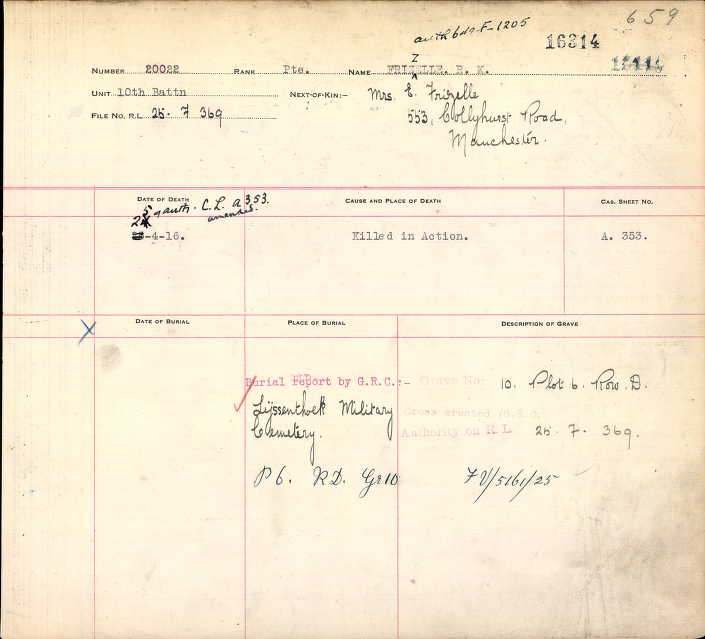 659
auth 6da F-1205
16314
NUMBER 20022 RANK Pte. NAME FRIZELLE. R. K.
UNIT 10th Battn NEXT-OF-KIN:- Mrs. E. Frizelle
FILE NO. R.L. 25. 7 369 553, Collyhurst Road,
Manchester.
DATE OF DEATH CAUSE AND PLACE OF DEATH CAS. SHEET NO.
25 auth. C.L. A353.
amended.
-4-16. Killed in Action. A. 353.
X DATE OF BURIAL PLACE OF BURIAL DESCRIPTION OF GRAVE
Burial report by G.R.C.:- Grave No: 10. Plot 6. Row. D.
Lijssenthoek Military
Cross erected
Cemetery. Authority on R.L 25. 7. 369.
P 6. R.D. Gr 10 FV/5161/25